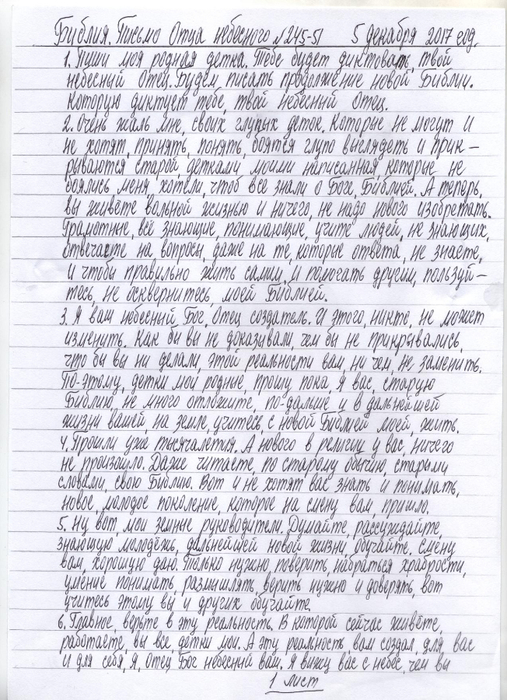 Библия. Письмо Отца небесного №245-51 5 декабря 2017 год.
1. Пиши моя родная детка. Тебе будет диктовать, твой
небесный Отец. Будем, писать продолжение новой Библии.
Которую диктует тебе, твой небесный Отец.
2. Очень жаль мне, своих глупых деток, которые не могут и
не хотят, принять, понять, боятся глупо выглядеть и прик-
рываются старой, детками моими написанная, которые не
боялись меня, хотели, чтоб все знали о Боге, Библией. А теперь,
вы живёте вольной жизнью и ничего, не надо нового изобретать.
Грамотные, всё знающие, понимающие, учите людей, не знающих,
отвечайте на вопросы, даже на те, которые ответа, не знаете,
и чтобы правильно жить самим, и помогать другим, пользуй-
тесь, не осквернитесь моей Библией.
3. Я ваш небесный Бог, Отец создатель. И этого, никто, не может
изменить. Как бы вы не доказывали, чем бы не прикрывались,
что бы вы ни делали, этой реальности вам, ни чем, не заменить.
По-этому, детки мои родные, прошу пока я вас, старую
Библию, не много отложите, по-дальше, и в дальнейшей
жизни вашей, на земле, учитесь, с новой Библией моей, жить.
4. Прошли уже тысячелетия. А нового в религии у вас, ничего
не произошло. Даже читаете, по старому обычаю, старыми
словами, свою Библию. Вот и не хотят вас знать и понимать,
новое, молодое поколение, которое на смену вам, пришло.
5. Ну вот, мои земные руководители. Думайте, рассуждайте,
знающую молодёжь, дальнейшей новой жизни, обучайте. Смену
вам, хорошую даю. Только нужно поверить, набраться храбрости,
умение понимать, размышлять, верить нужно и доверять, вот
учитесь этому вы и других обучайте.
6. Главное, верьте в эту реальность. В которой сейчас живёте,
работаете, вы все детки мои. А эту реальность вам создал, для вас
и для себя, я, Отец Бог небесный вам. Я вижу вас с небес, чем вы
1 лист